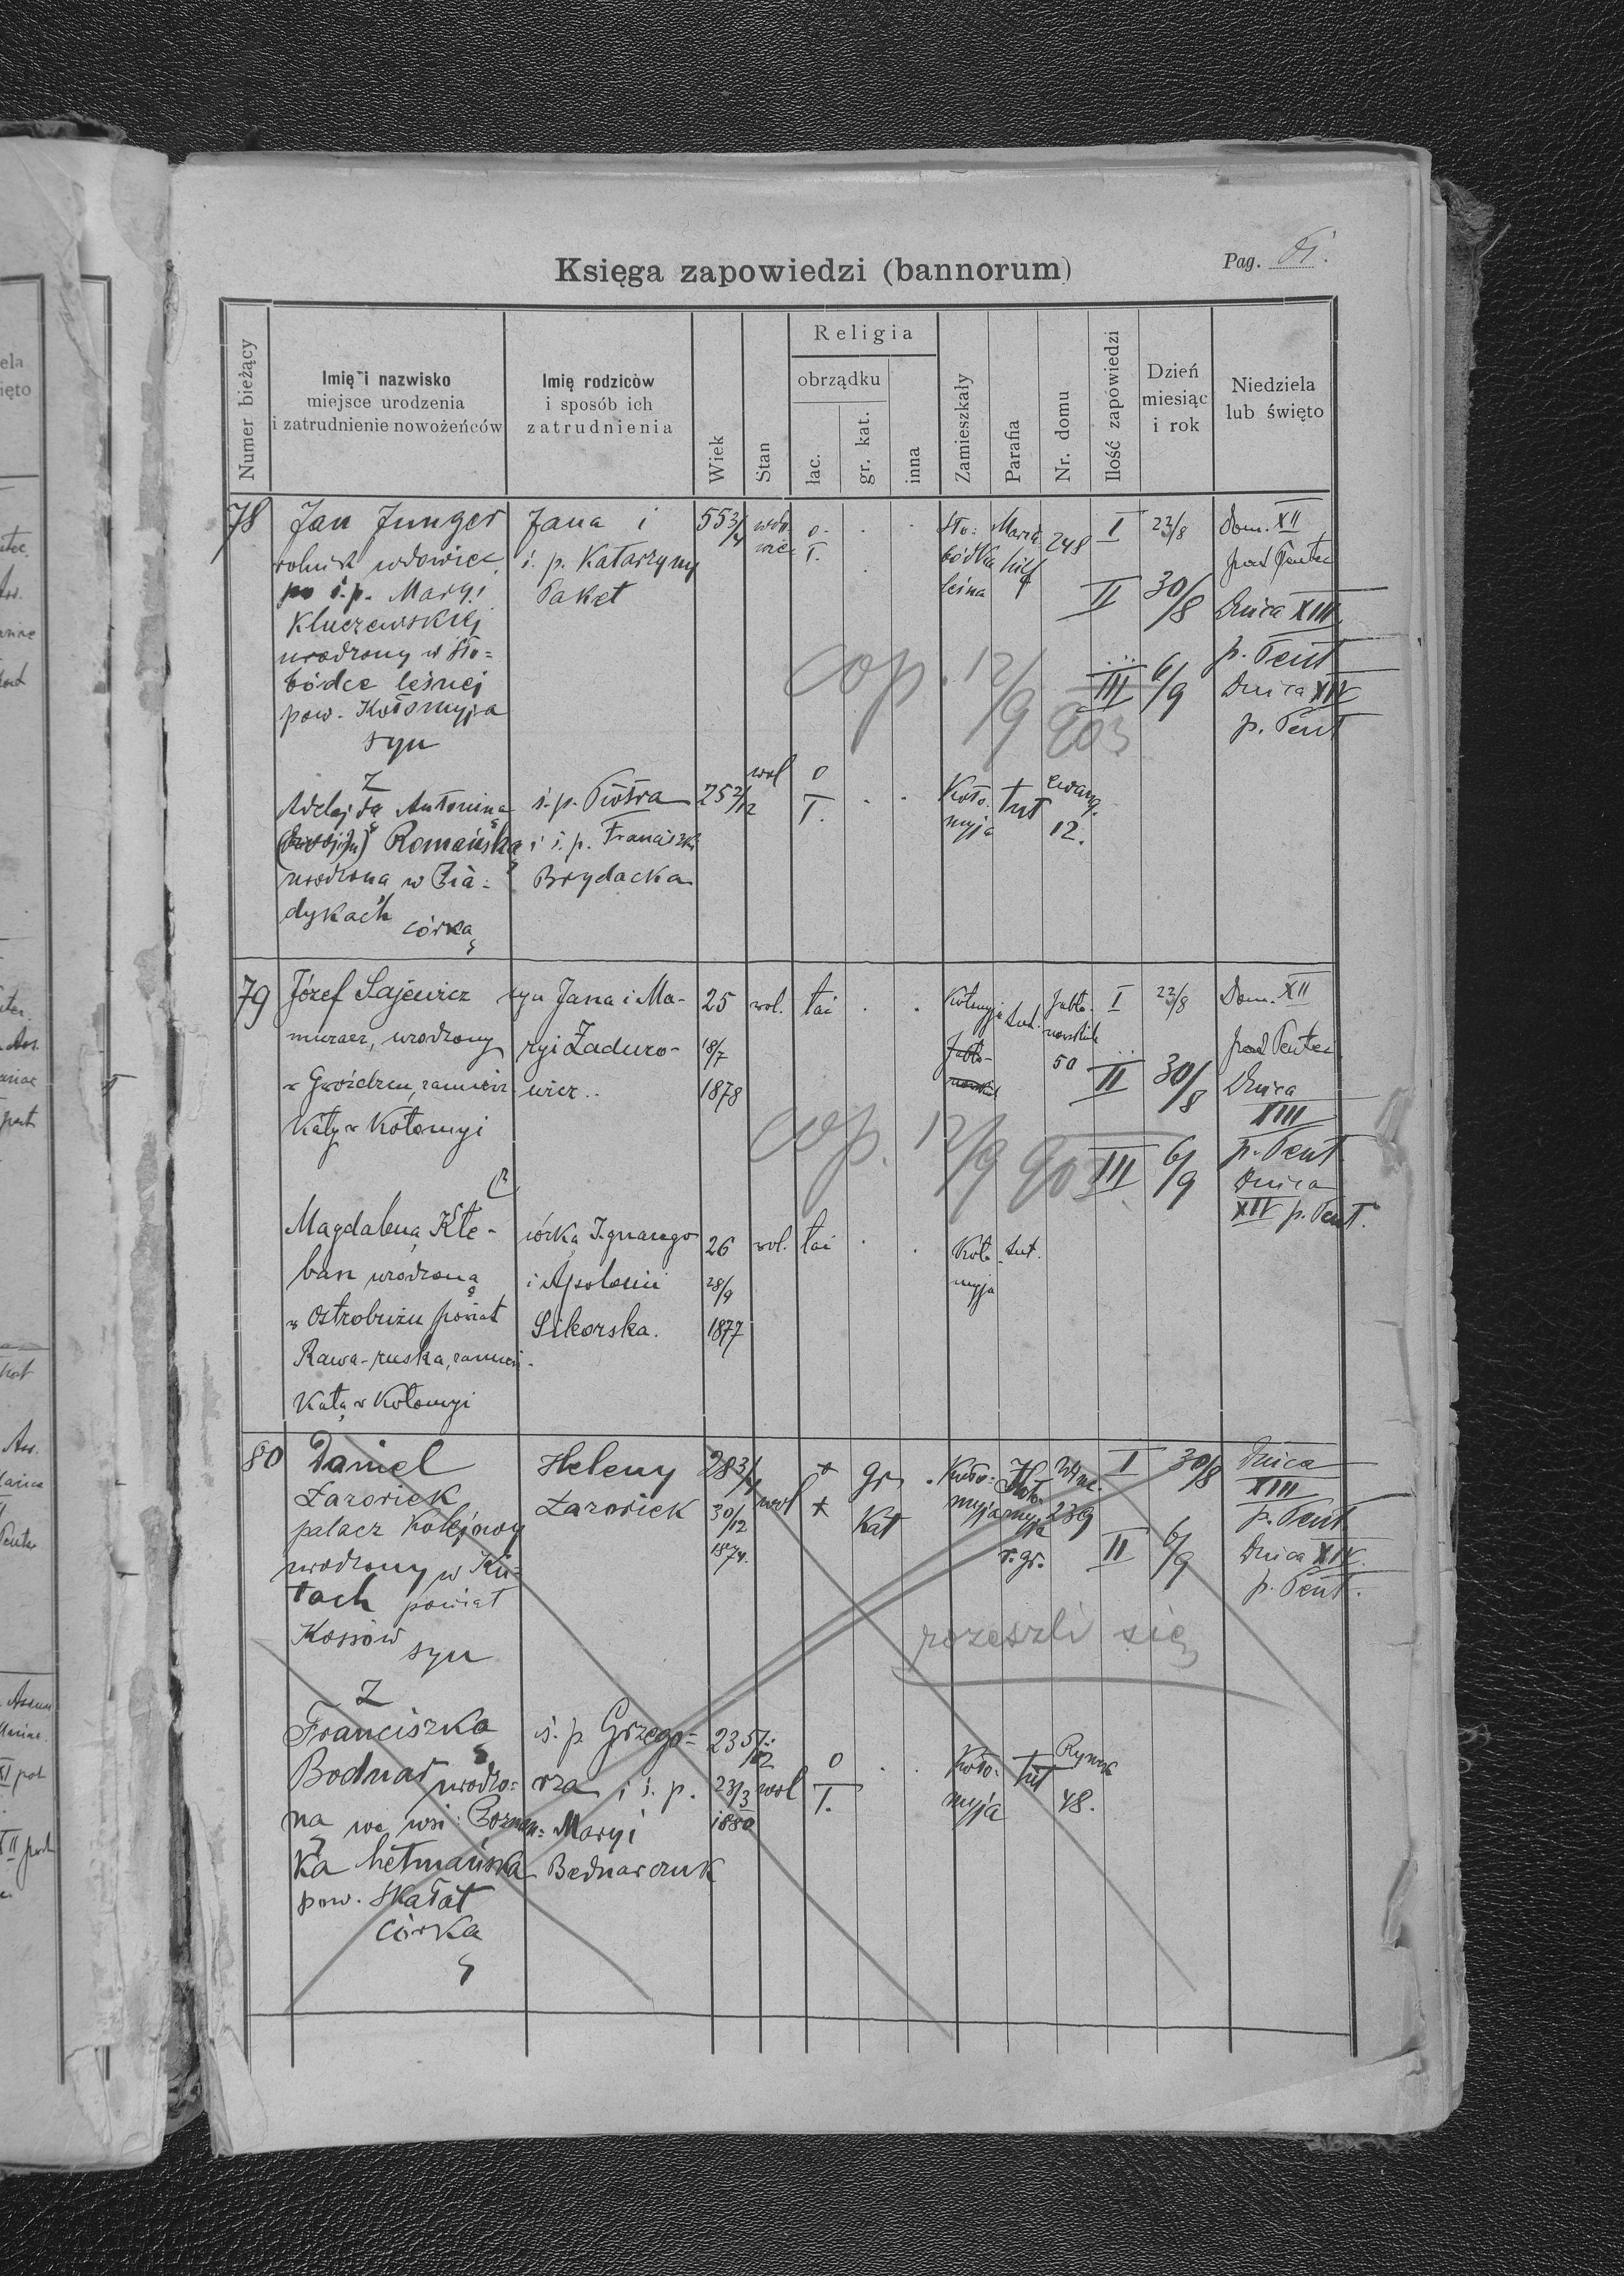 Księga zapowiedzi (bannorum)
Pag.
Numer bieżący
Imię i nazwisko
miejsce urodzenia
i zatrudnienie nowożeńców
Imię rodziców
i sposób ich
zatrudnienia
Wiek
Stan
Religia
obrządku
łac.
gr. kat.
inna
Zamieszkały
Parafia
Nr. domu
Ilość zapowiedzi
Dzień
miesiąc
i rok
Niedziela
lub święto
78
Jan Junger
rolnik wdowiec
po ś.p. Maryi
Kluczewskiej
urodzony w Sło=
bódce leśnej
pow. Kołomyja
syn
Jana i
ś. p. Katarzyny
Paket
55 3/4
wdo
wiec
o.
ł.
Sło=
bódka
leśna
Maria
hilf
248
I
23/8
Dom. XII
post Pentec
II
30/8
Dnica XIII
p. Pent
III
6/9
Dnica XIV
p. Pent
cop. 12/9 903
z
Adelajdą Antoniną
Romańską
urodzoną w Dia=
dykach
córką
ś. p. Piotra
i ś. p. Franciszki
Brydacka
25 2/12
wol
o
ł.
Koło=
myja
tut
ewang.
12.
79
Józef Sajewicz
murarz, urodzony
w Gwoźdzcu, zamiesz-
kały w Kołomyi
syn Jana i Ma-
ryi Zaduro-
wicz..
25
18/7
1878
wol.
łać
Kołomyja
tut.
Jabło-
nowskich
50
I
23/8
Dom. XII
post Pentec
II
30/8
Dnica
XIII
p. Pent
III
6/9
Dnica
XIV p. Pent.
cop. 12/9 903
Magdaleną Kłe-
ban urodzoną
w Ostrobużu powiat
Rawa-ruska, zamiesz-
kałą w Kołomyi
córką Ignacego
i Apolonii
Sikorska.
26
28/9
1877
wol.
łać
Koło-
myja
tut.
80
Daniel
Łazoriek
palacz kolejowy
urodzony w Ku=
tach powiat
Kossów
syn
Heleny
Łazoriek
28 3/4
30/12
1874.
wol
gr.
Kat
Koło=
myja
Koło=
myja
r. gr.
239
I
30/8
Dnica
XIII
p. Pent
II
6/9
Dnica XIV.
p. Pent.
rozeszli się
z
Franciszką
Bodnar urodzo=
ną we wsi: Poznan=
ka hetmańska
pow. Skałat
córką
ś. p Grzego=
rza i ś. p.
Maryi
Bednarczuk
23 5/12
23/3
1880
wol
o
ł.
Koło=
myja
tut
Rynek
48.